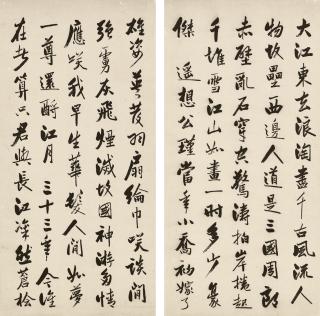 大江東去浪淘盡千古風流人
物故壘西邊人道是三國周郎
赤壁亂石穿空驚濤拍岸捲起
千堆雪江山如畫一時多少豪
傑 遙想公瑾當年小喬初嫁了
雄姿英發羽扇綸巾笑談間
強虜灰飛煙滅故國神游多情
應笑我早生華髮人間如夢
一尊還酹江月 三十三年今誰
在者算只君與長江凜然蒼檜